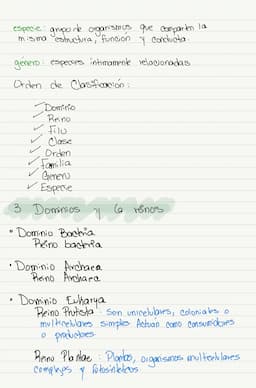 especie: grupo de organismos que comparten la
misma estructura, función y conducta.
género: especies intimamente relacionadas
Orden de Clasificación:
Dominio
Reino
Filo
Clase
Orden
Familia
Genero
Especie
3 Dominios y 6 reinos
• Dominio Bacteria
Reino bacteria
• Dominio Archaea
Reino Archaea
• Dominio Eukarya
Reino Protista: Son unicelulares, coloniales o
multicelulares simples Actúan como consumidores
o productores.
Reino Plantae: Plantas, organismos multicelulares
complejos y fotosintéticos